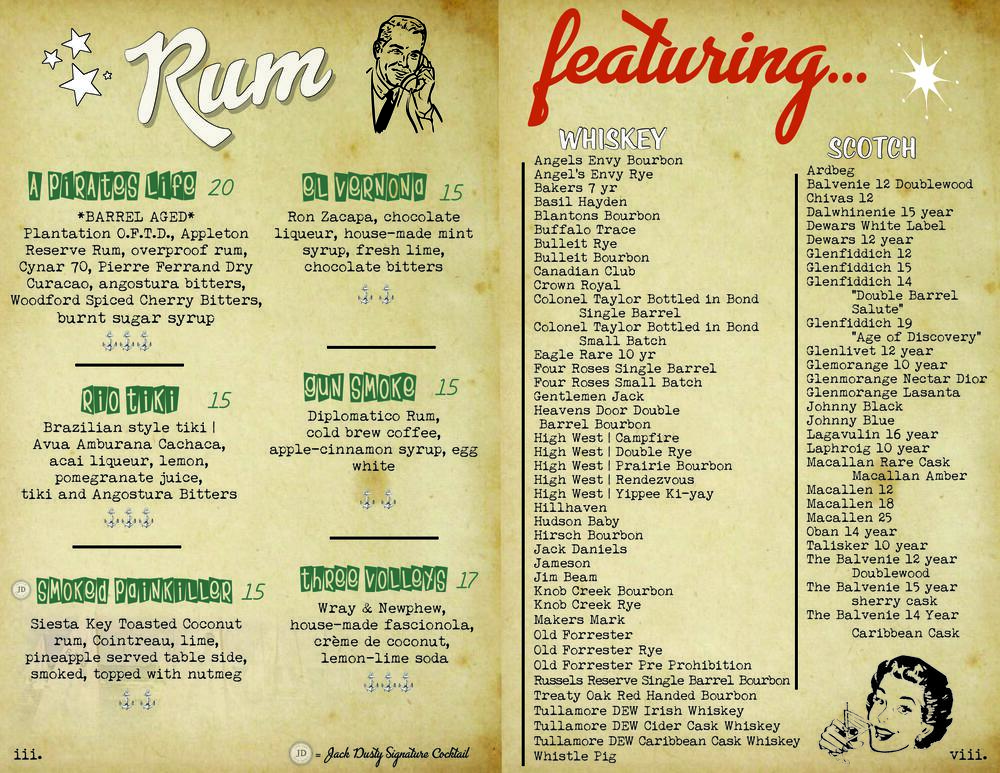 Rum
A PIRATES LIFE 20
*BARREL AGED*
Plantation O.F.T.D., Appleton
Reserve Rum, overproof rum,
Cynar 70, Pierre Ferrand Dry
Curacao, angostura bitters,
Woodford Spiced Cherry Bitters,
burnt sugar syrup
RIO TIKI 15
Brazilian style tiki |
Avua Amburana Cachaca,
acai liqueur, lemon,
pomegranate juice,
tiki and Angostura Bitters
JD SMOKED PAINKILLER 15
Siesta Key Toasted Coconut
rum, Cointreau, lime,
pineapple served table side,
smoked, topped with nutmeg
EL VERNONA 15
Ron Zacapa, chocolate
liqueur, house-made mint
syrup, fresh lime,
chocolate bitters
GUN SMOKE 15
Diplomatico Rum,
cold brew coffee,
apple-cinnamon syrup, egg
white
THREE VOLLEYS 17
Wray & Newphew,
house-made fascionola,
crème de coconut,
lemon-lime soda
iii.
JD = Jack Dusty Signature Cocktail
featuring...
WHISKEY
Angels Envy Bourbon
Angel's Envy Rye
Bakers 7 yr
Basil Hayden
Blantons Bourbon
Buffalo Trace
Bulleit Rye
Bulleit Bourbon
Canadian Club
Crown Royal
Colonel Taylor Bottled in Bond
Single Barrel
Colonel Taylor Bottled in Bond
Small Batch
Eagle Rare 10 yr
Four Roses Single Barrel
Four Roses Small Batch
Gentlemen Jack
Heavens Door Double
Barrel Bourbon
High West | Campfire
High West | Double Rye
High West | Prairie Bourbon
High West | Rendezvous
High West | Yippee Ki-yay
Hillhaven
Hudson Baby
Hirsch Bourbon
Jack Daniels
Jameson
Jim Beam
Knob Creek Bourbon
Knob Creek Rye
Makers Mark
Old Forrester
Old Forrester Rye
Old Forrester Pre Prohibition
Russels Reserve Single Barrel Bourbon
Treaty Oak Red Handed Bourbon
Tullamore DEW Irish Whiskey
Tullamore DEW Cider Cask Whiskey
Tullamore DEW Caribbean Cask Whiskey
Whistle Pig
SCOTCH
Ardbeg
Balvenie 12 Doublewood
Chivas 12
Dalwhinenie 15 year
Dewars White Label
Dewars 12 year
Glenfiddich 12
Glenfiddich 15
Glenfiddich 14
"Double Barrel
Salute"
Glenfiddich 19
"Age of Discovery"
Glenlivet 12 year
Glemorange 10 year
Glenmorange Nectar Dior
Glenmorange Lasanta
Johnny Black
Johnny Blue
Lagavulin 16 year
Laphroig 10 year
Macallan Rare Cask
Macallan Amber
Macallen 12
Macallen 18
Macallen 25
Oban 14 year
Talisker 10 year
The Balvenie 12 year
Doublewood
The Balvenie 15 year
sherry cask
The Balvenie 14 Year
Caribbean Cask
viii.